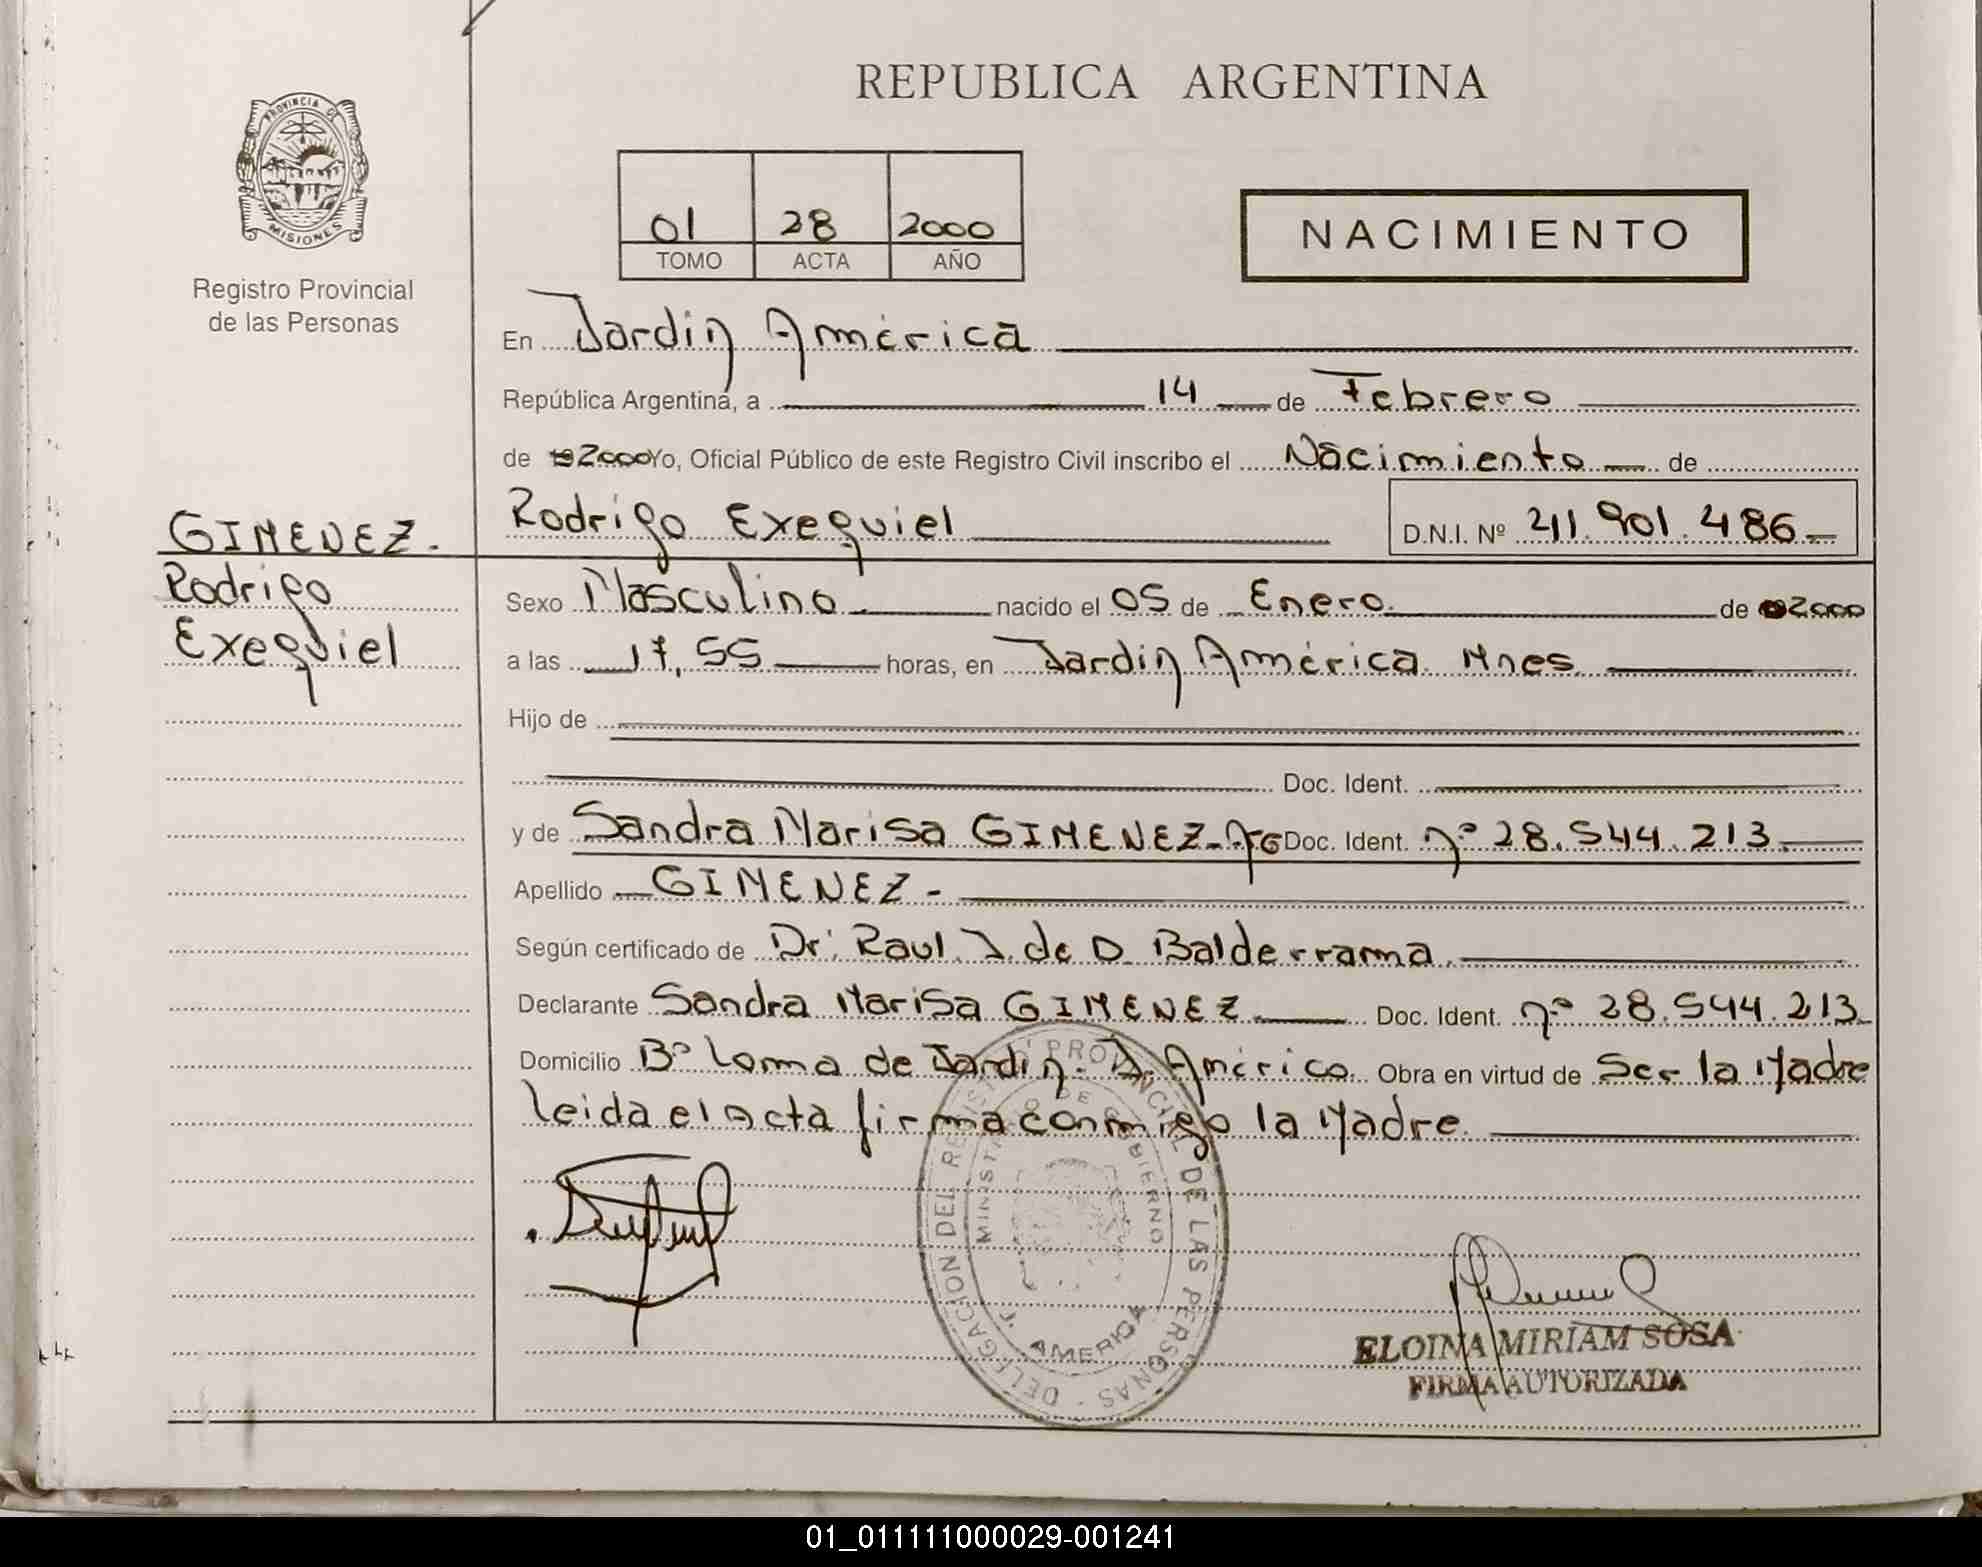 REPUBLICA ARGENTINA
PROVINCIA DE
MISIONES
Registro Provincial
de las Personas
01 28 2000
TOMO ACTA AÑO
NACIMIENTO
En Jardin América
República Argentina, a 14 de Febrero
de 2000 Yo, Oficial Público de este Registro Civil inscribo el Nacimiento de
Rodrigo Exequiel D.N.I. Nº 41.901.486
GIMENEZ.
Rodrigo
Exequiel
Sexo Masculino nacido el 05 de Enero de 2000
a las 17,55 horas, en Jardin América Mnes.
Hijo de
Doc. Ident.
y de Sandra Marisa GIMENEZ Doc. Ident. nº 28.544.213.
Apellido GIMENEZ-
Según certificado de Dr. Raul J. de D. Balderrama
Declarante Sandra Marisa GIMENEZ Doc. Ident. nº 28.544.213
Domicilio Bº Loma de Jardin- J. América. Obra en virtud de Ser la Madre
leida el acta firma conmigo la Madre
DELEGACION DEL REGISTRO PROVINCIAL DE LAS PERSONAS -
MINISTERIO DE GOBIERNO
J. AMERICA
ELOINA MIRIAM SOSA
FIRMA AUTORIZADA
01_011111000029-001241